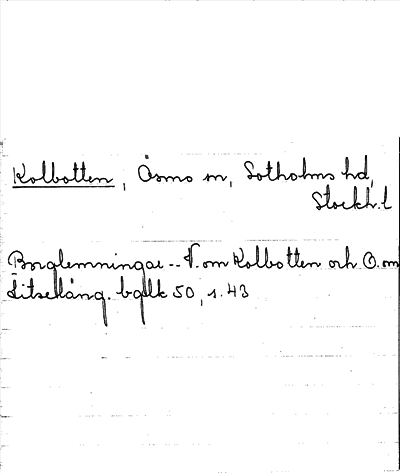 Kolbotten, Ösmo sn, Sotholms hd,
Stockh.l
Borglemningar -- V. om Kolbotten och O. om
bglk 50, s. 43